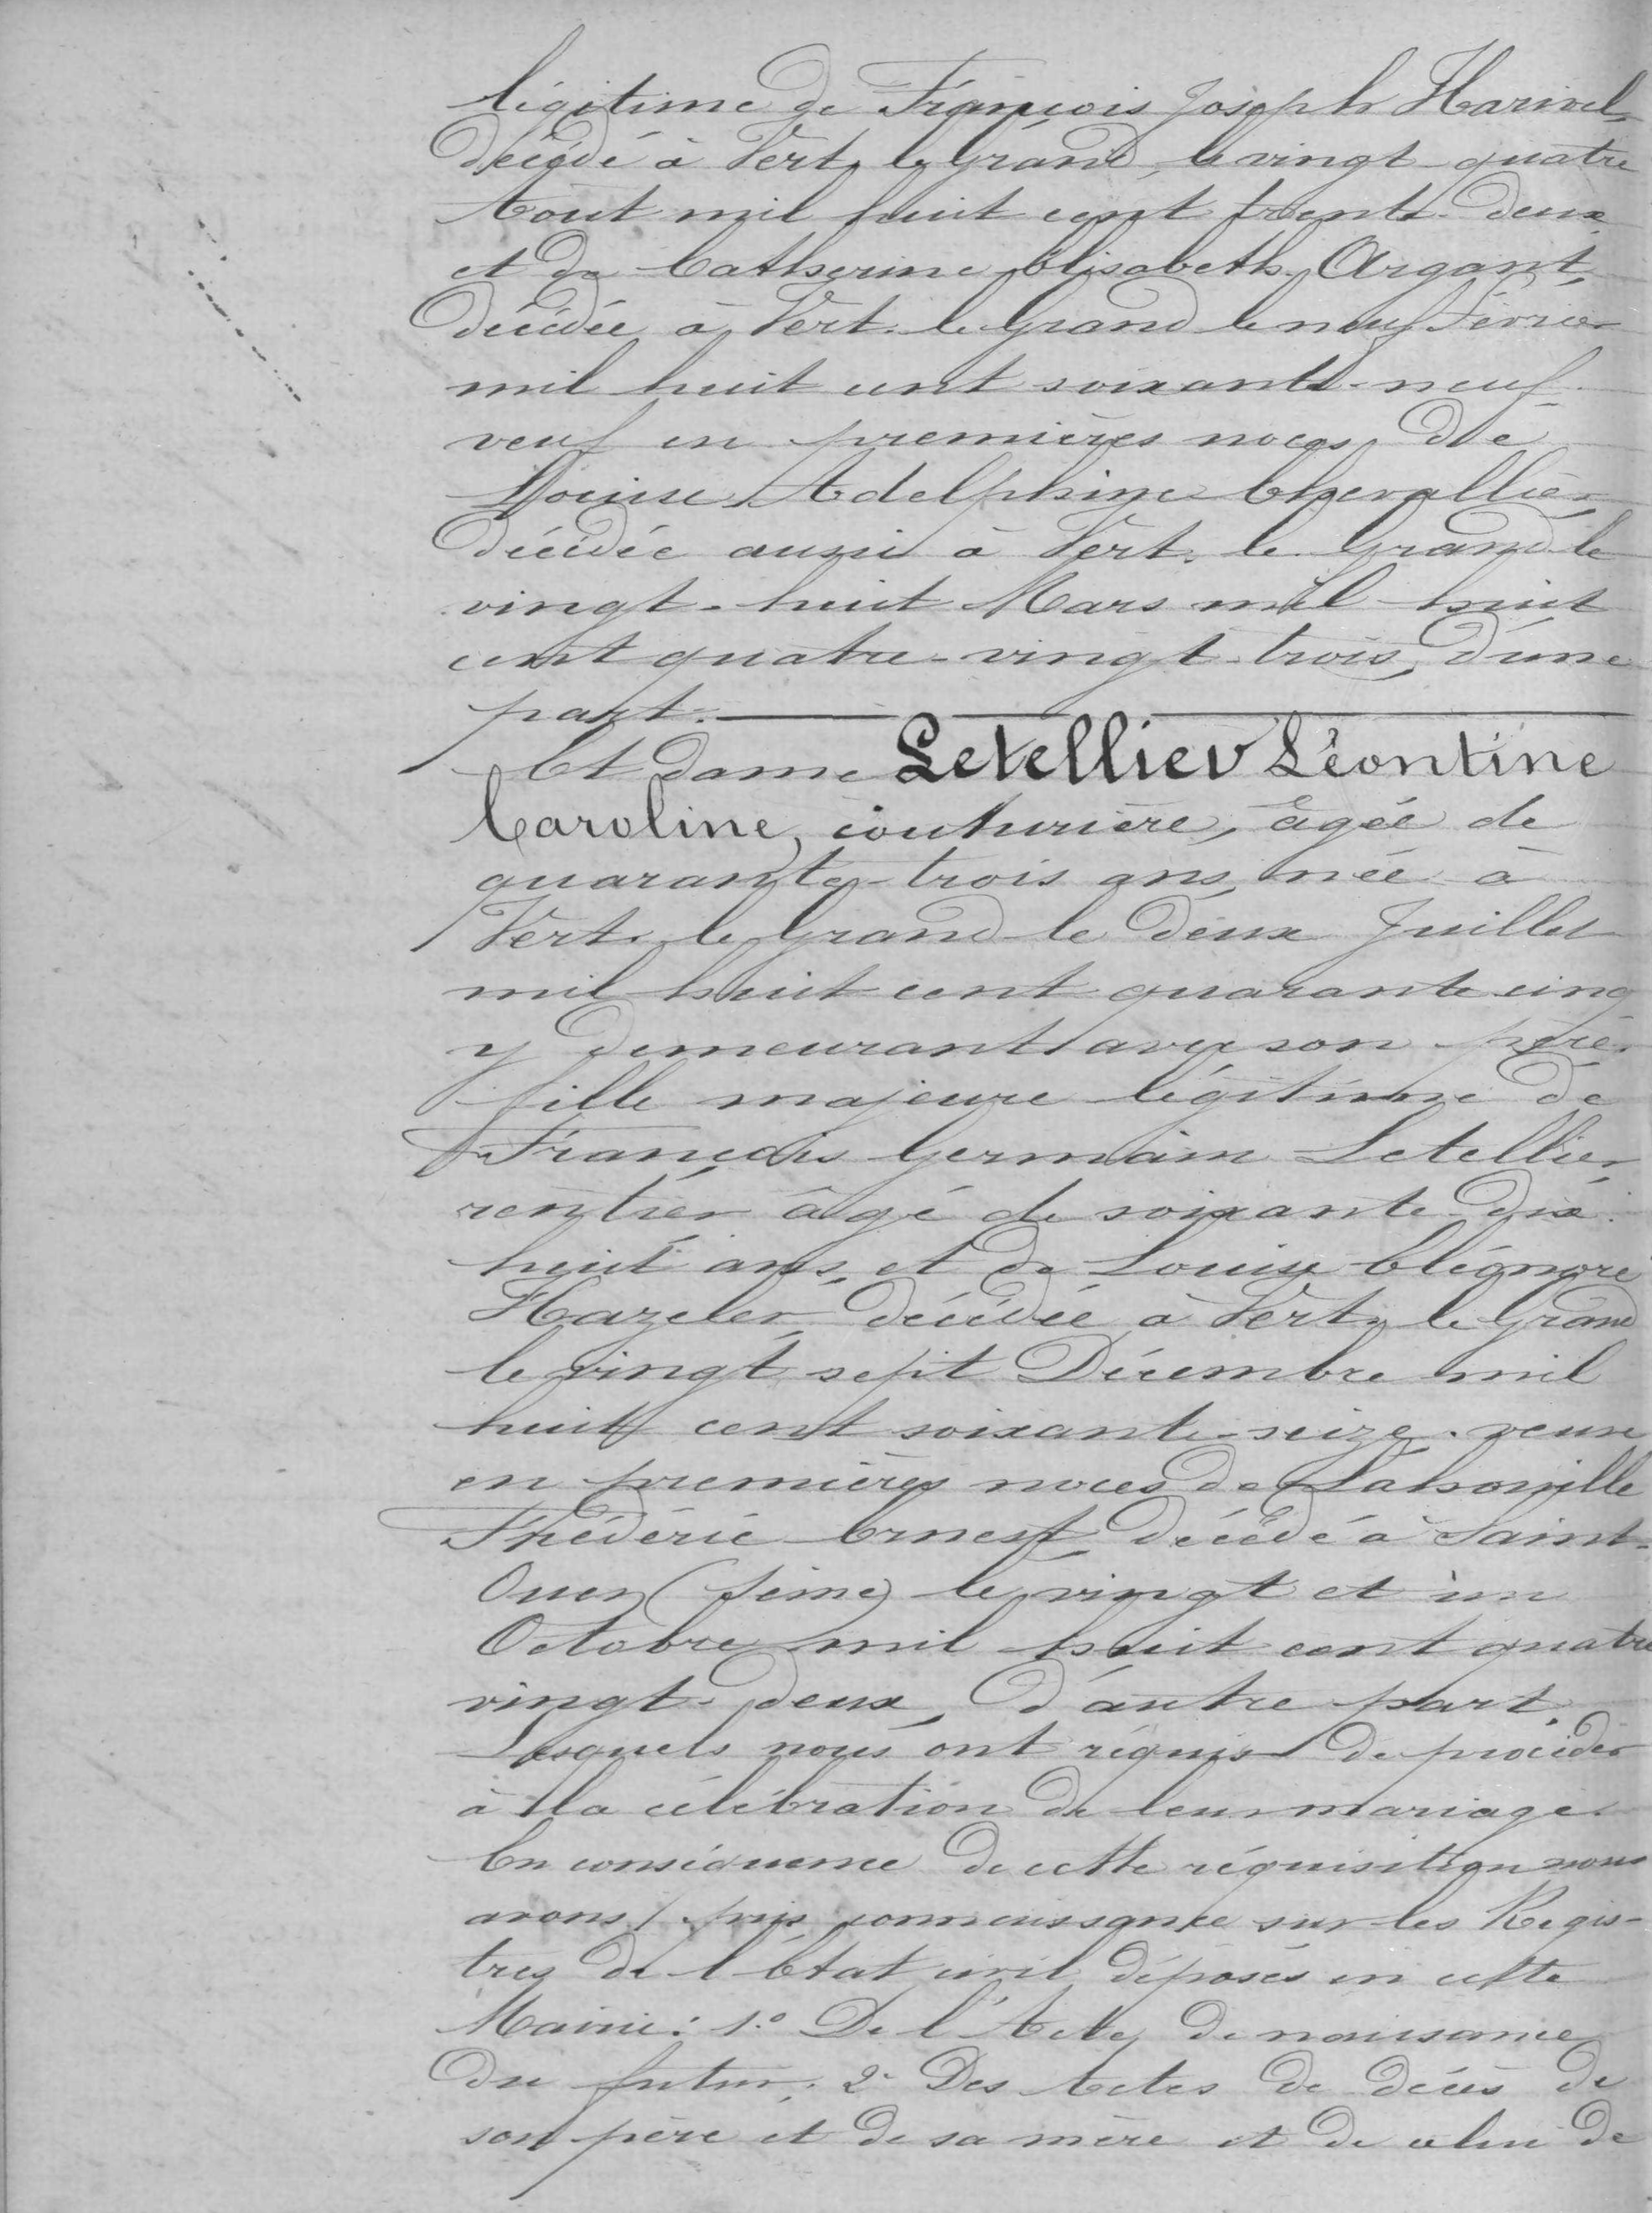 légitime de François Joseph Harivel
décédé à Vert le Grand, le vingt-quatre
Août mil huit cent trente-deux
et de Catherine Elisabeth Argant,
décédée à Vert-le-Grand le neuf Février
mil huit cent soixante-neuf
veuf en premières noces de
Louise Adelphine Chevallier
décédée aussi à Vert-le-Grand le
vingt-huit Mars mil huit
cent quatre-vingt-trois, d'une
part.
Et dame Letellier Léontine
Caroline, couturière, âgée de
quarante-trois ans, née à
Vert-le-Grand le deux Juillet
mil huit cent quarante cinq
y demeurant avec son père
fille majeure légitime de
François Germain Letellier
rentier âgé de soixante-dix
huit ans, et de Louise Eléonore
Hazeler décédée à Vert-le-Grand
le vingt sept Décembre mil
huit cent soixante-seize. veuve
en premières noces de
Frédéric Ernest, décédé à Saint-
Ouen (Seine) le vingt et un
Octobre mil huit cent quatre
vingt-deux, d'autre part.
Lesquels nous ont requis de procéder
à la célébration de leur mariage.
En conséquence de cette réquisition nous
avons pris connaissance sur les Regis-
tres de l'Etat civil déposés en cette
Mairie: 1.° De l'Acte de naissance
du futur; 2° Des Actes de décès de
son père et de sa mère et de celui de